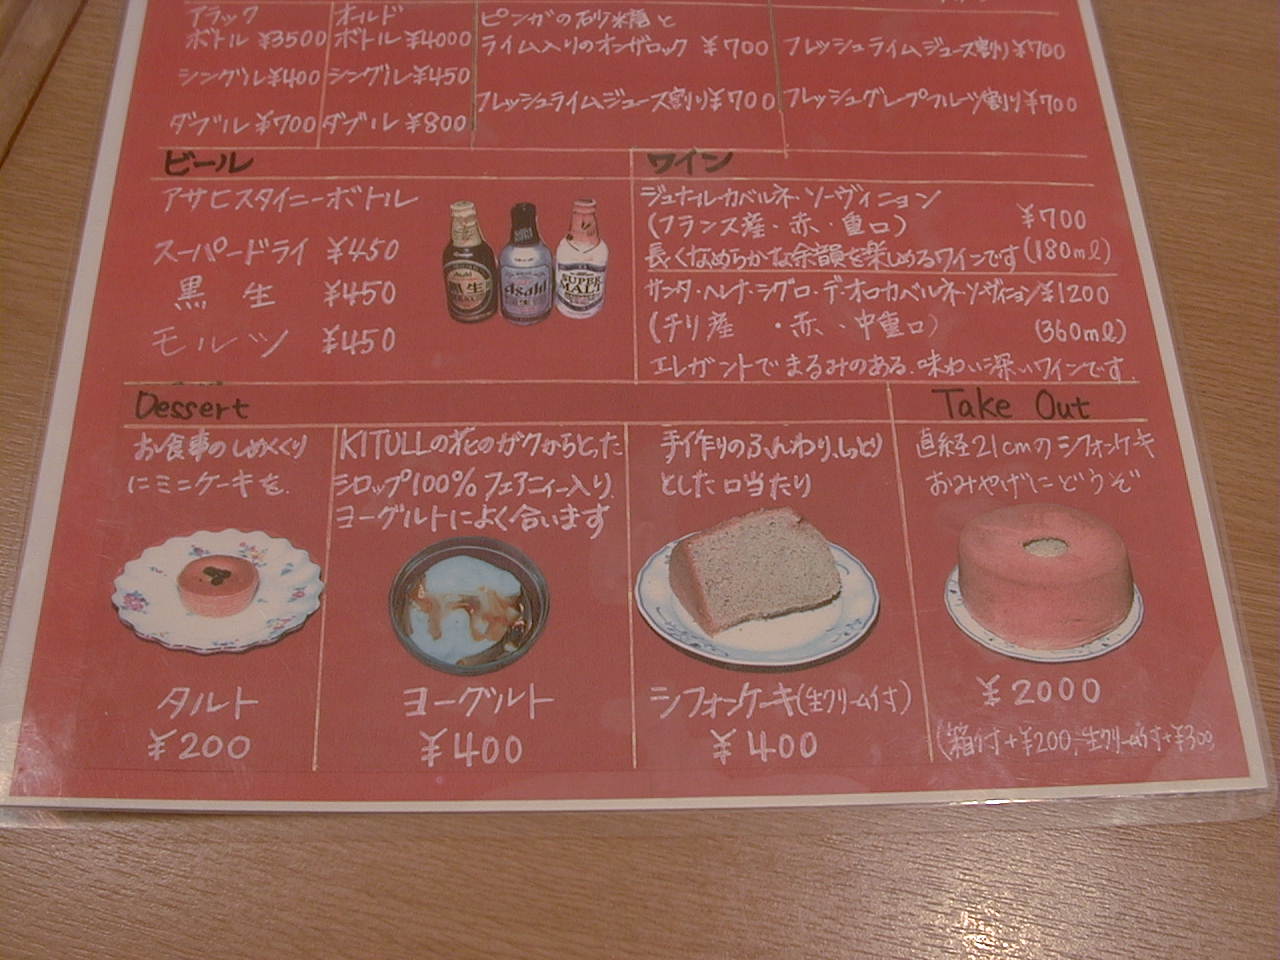 アラック
ボトル ¥3500
シングル ¥400
ダブル ¥700
オールド
ボトル ¥4000
シングル ¥450
ダブル ¥800
ピンガの砂糖と
ライム入りのオンザロック ¥700
フレッシュライムジュース割り ¥700
フレッシュライムジュース割り ¥700
フレッシュグレープフルーツ割り ¥700
ビール
アサヒスタイニーボトル
スーパードライ ¥450
黒 生 ¥450
モルツ ¥450
Asahi
SUPER
MALT
ワイン
ジュナール・カベルネ・ソーヴィニョン
(フランス産・赤・重口) ¥700
長くなめらかな余韻を楽しめるワインです (180ml)
サンタ・ヘレナ・シグロ・デ・オロカベルネ・ソーヴィニョン ¥1200
(チリ産 ・赤・中重口) (360ml)
エレガントでまるみのある、味わい深いワインです.
Dessert
お食事のしめくくり
にミニケーキを.
タルト
¥200
KITULLの花のガクからとった
シロップ100% フェアニィー入り.
ヨーグルトによく合います
ヨーグルト
¥400
手作りのふんわり、しっとり
とした口当たり
シフォンケーキ(生クリーム付)
¥400
Take Out
直径21cmのシフォンケーキ
おみやげにどうぞ
¥2000
(箱付+¥200, 生クリーム付+¥300)